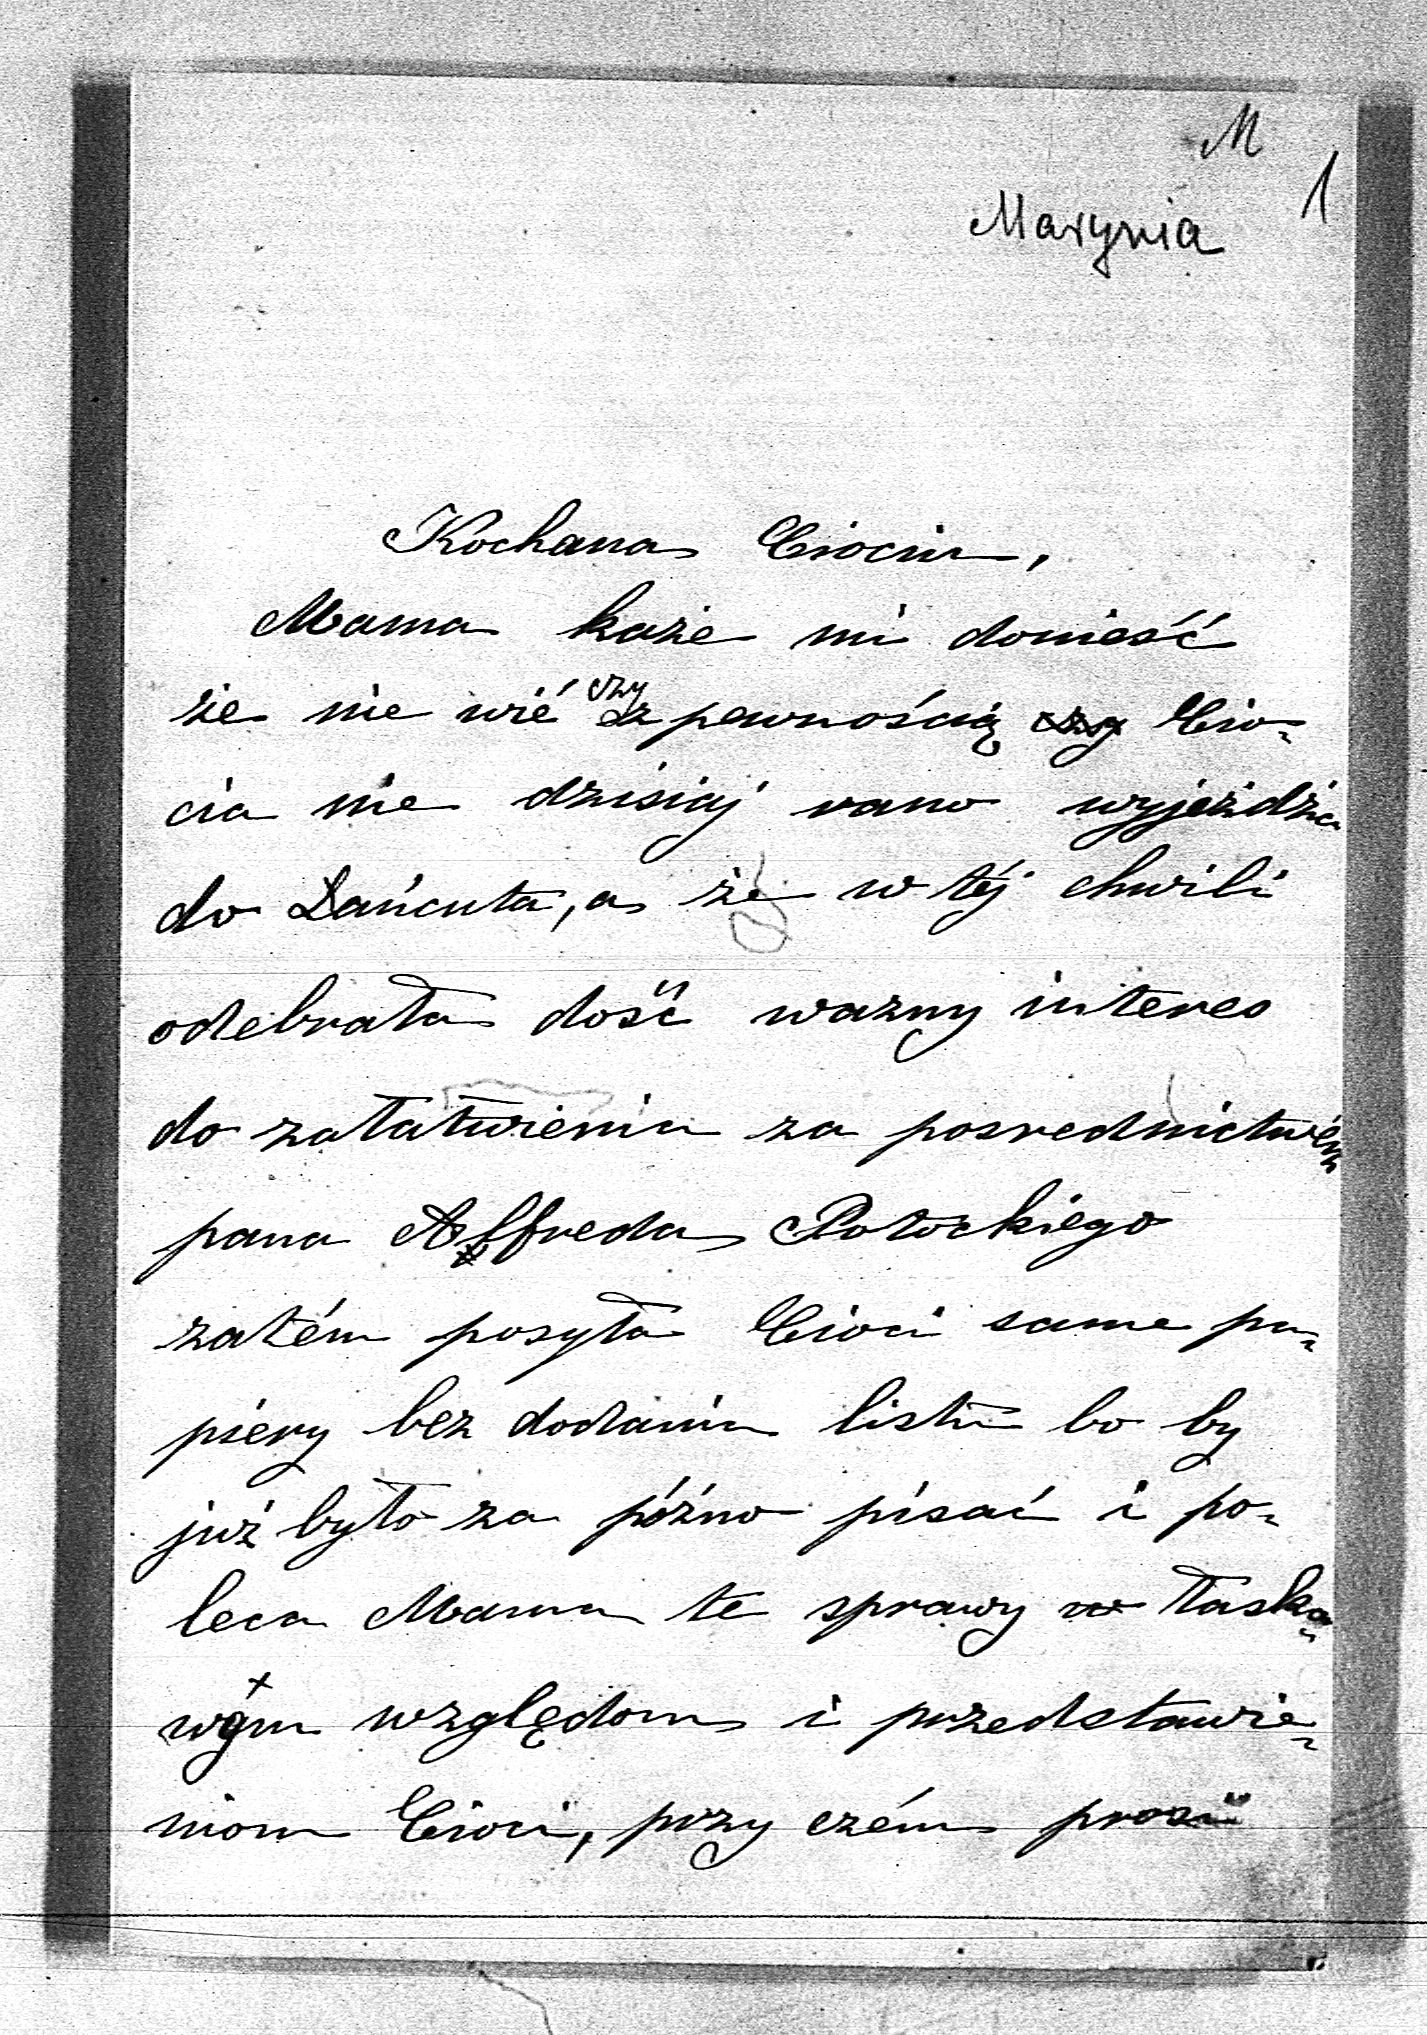 M
1
Marynia
Kochana Ciociu,
Mama każe mi donieść
że nie wié czy z pewnością czy Cio-
cia nie dzisiaj rano wyjeżdża
do Łańcuta, a że w téj chwili
odebrała dość wazny interes
do załatwienia za posrednictwém
pana Alfreda Potockiego
zatém posyła Cioci same pa-
piery bez dodania listu bo by
już było za późno pisać i po-
leca Mama te sprawy w łaska-
wym względom i przedstawie-
niom Cioci, przy czém prosi